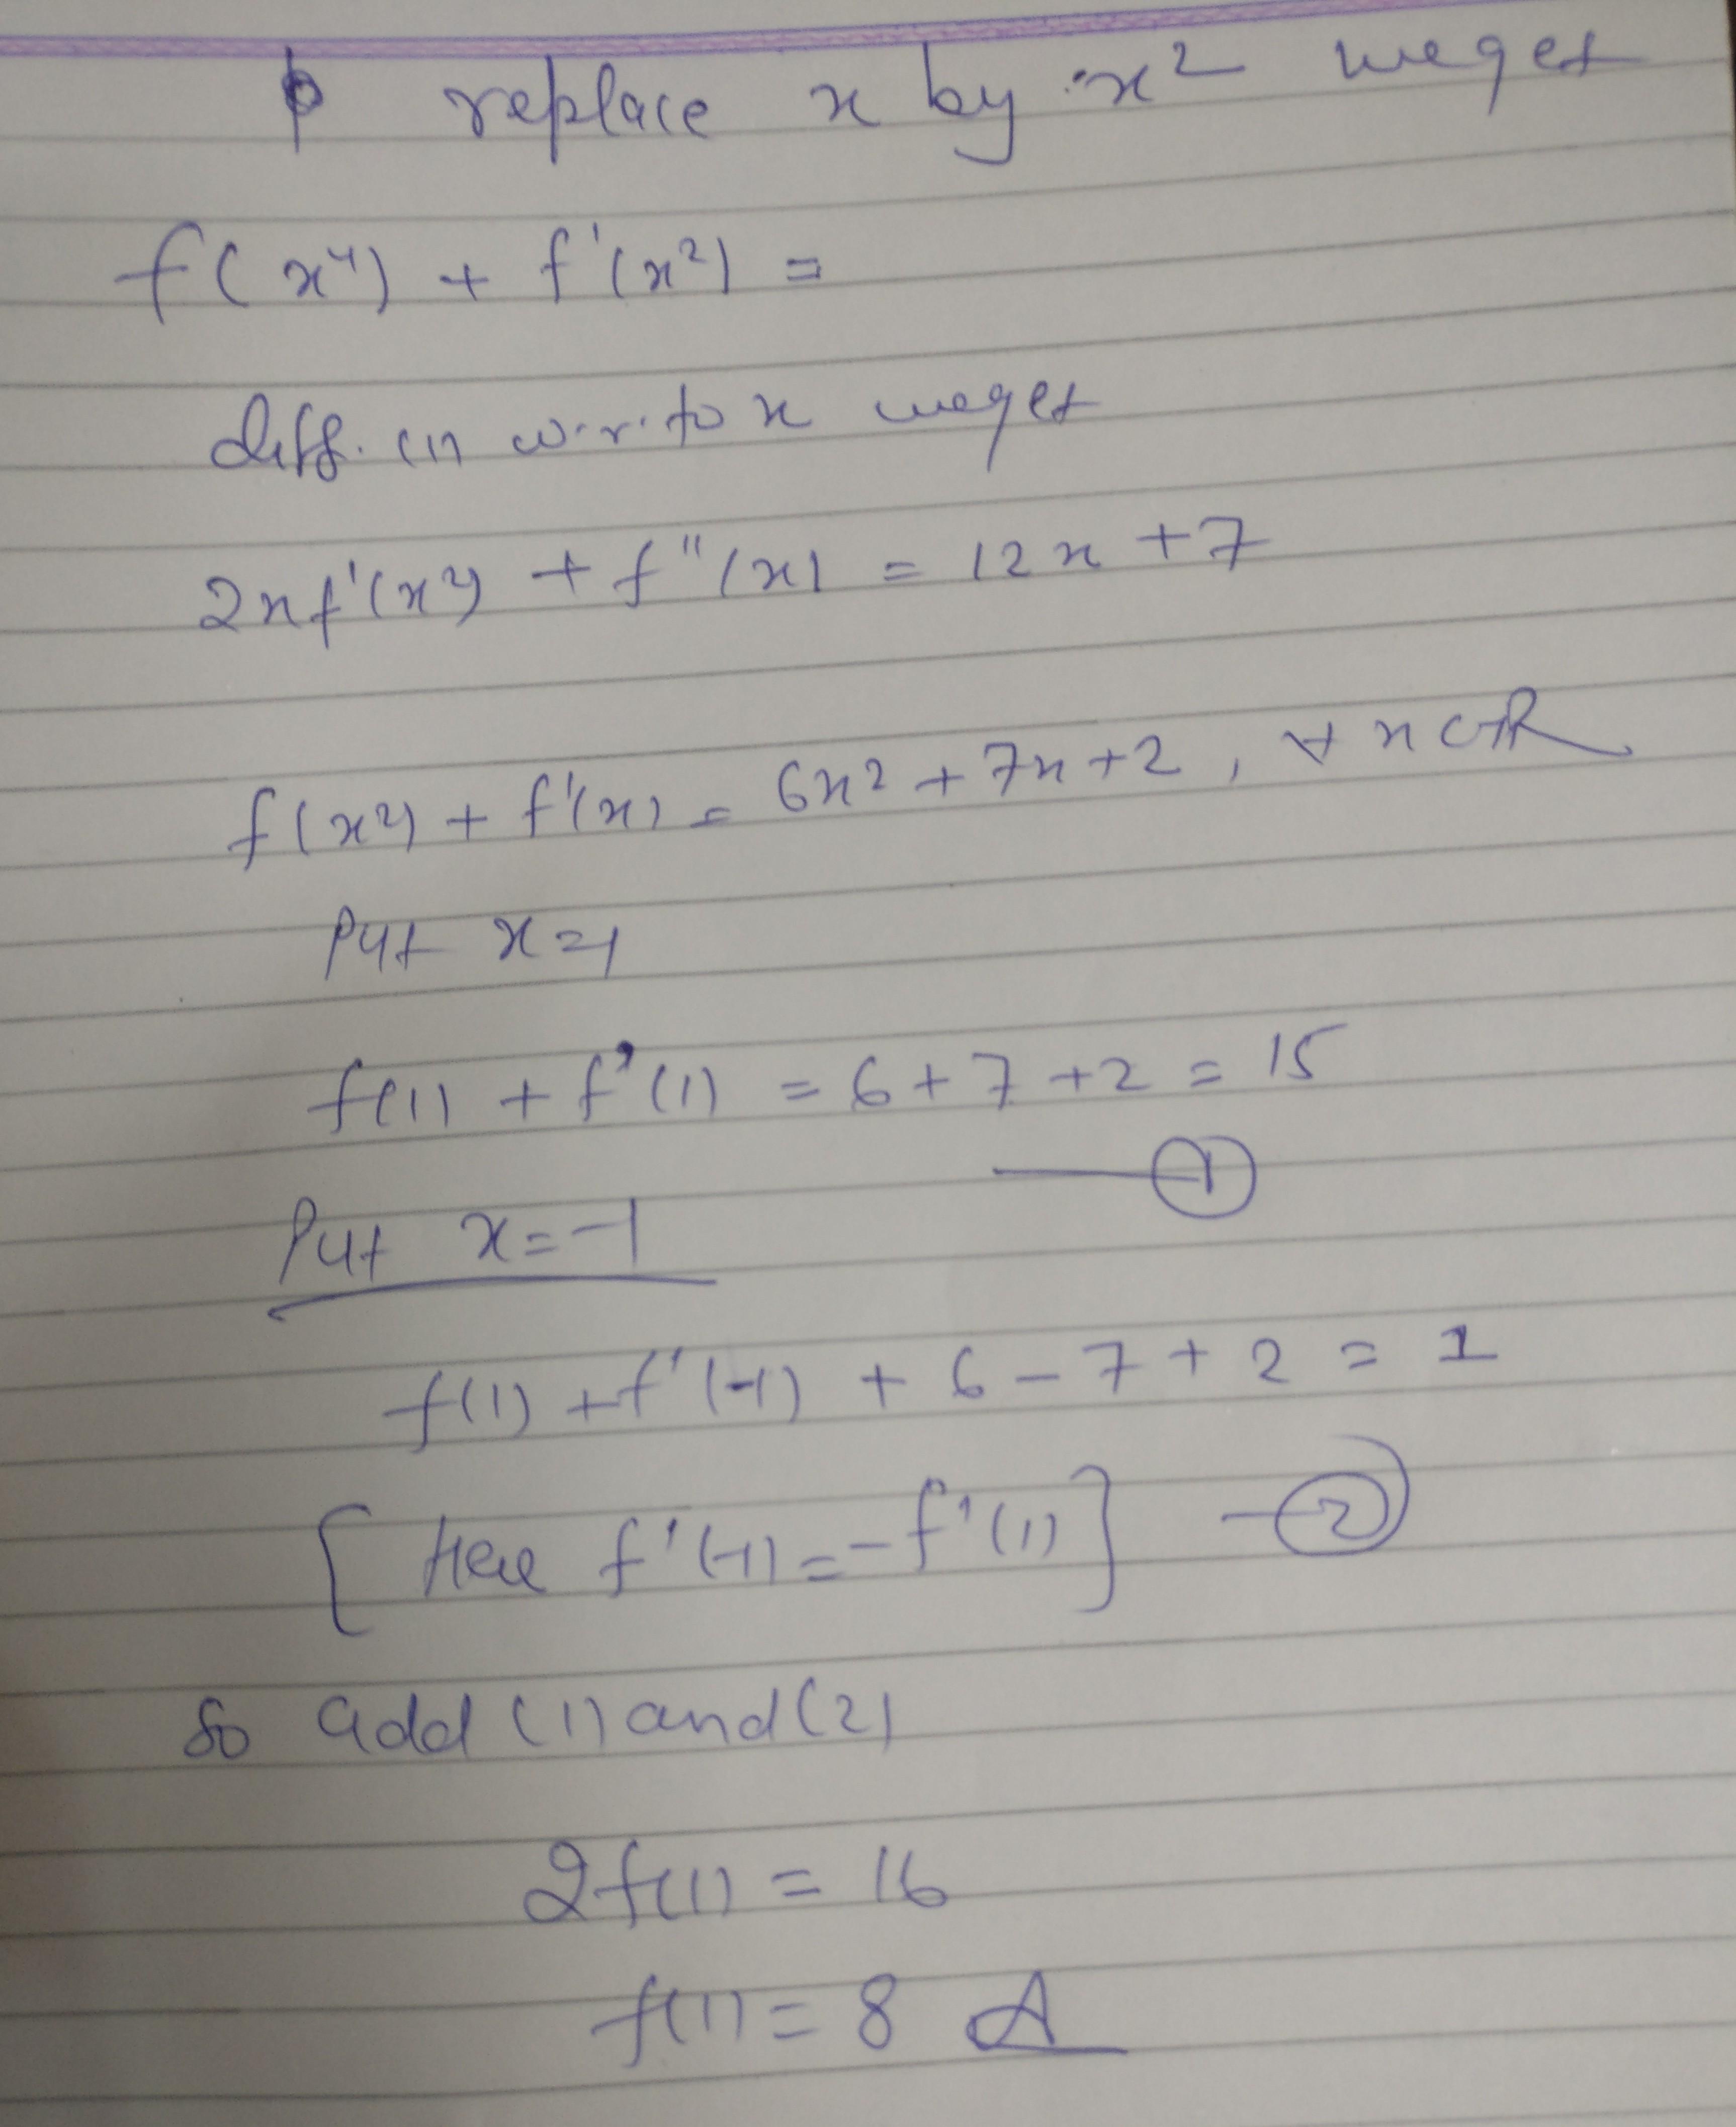 replace x by x² we get
f(x⁴) + f'(x²) =
diff. (1) w.r. to x we get
2xf'(x²) + f''(x) = 12x + 7
f(x²) + f'(x) = 6x² + 7x + 2, ∀ x ∈ R
Put x = 1
f(1) + f'(1) = 6 + 7 + 2 = 15
— ①
Put x = -1
f(1) + f'(-1) + 6 - 7 + 2 = 1
[Here f'(-1) = -f'(1)] — ②
So add (1) and (2)
2f(1) = 16
f(1) = 8 A